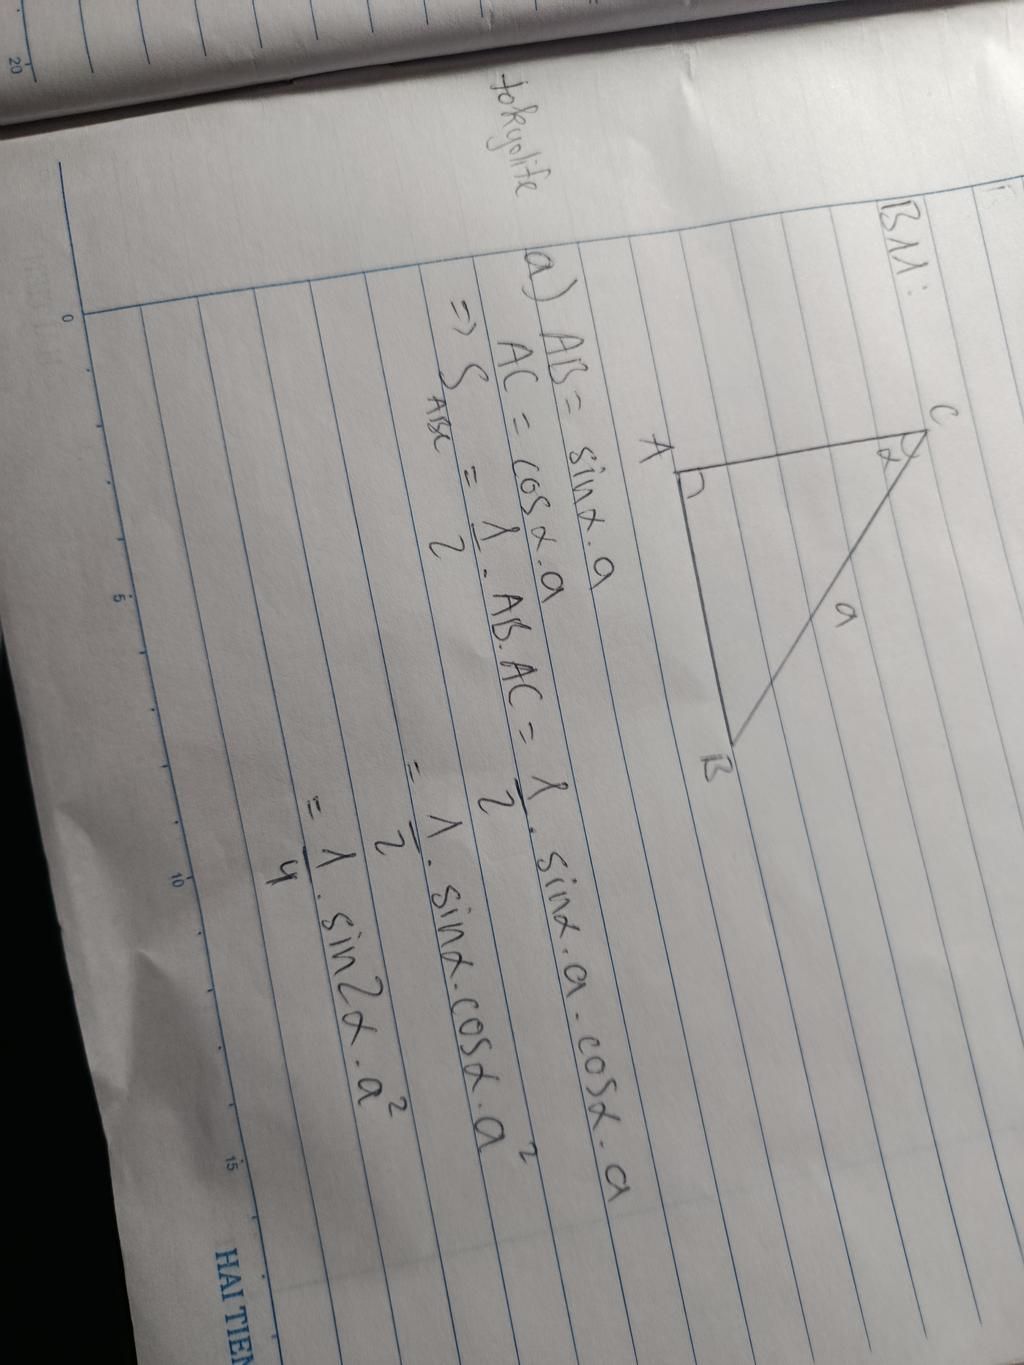 20
tokyolife
B11:
C
α
a
A
B
a) AB = sinα.a
AC = cosα.a
=> S ABC = 1/2 . AB.AC = 1/2 . sinα.a.cosα.a
= 1/2 . sinα.cosα.a²
= 1/4 . sin2α.a²
0 5 10 15
HAI TIEN